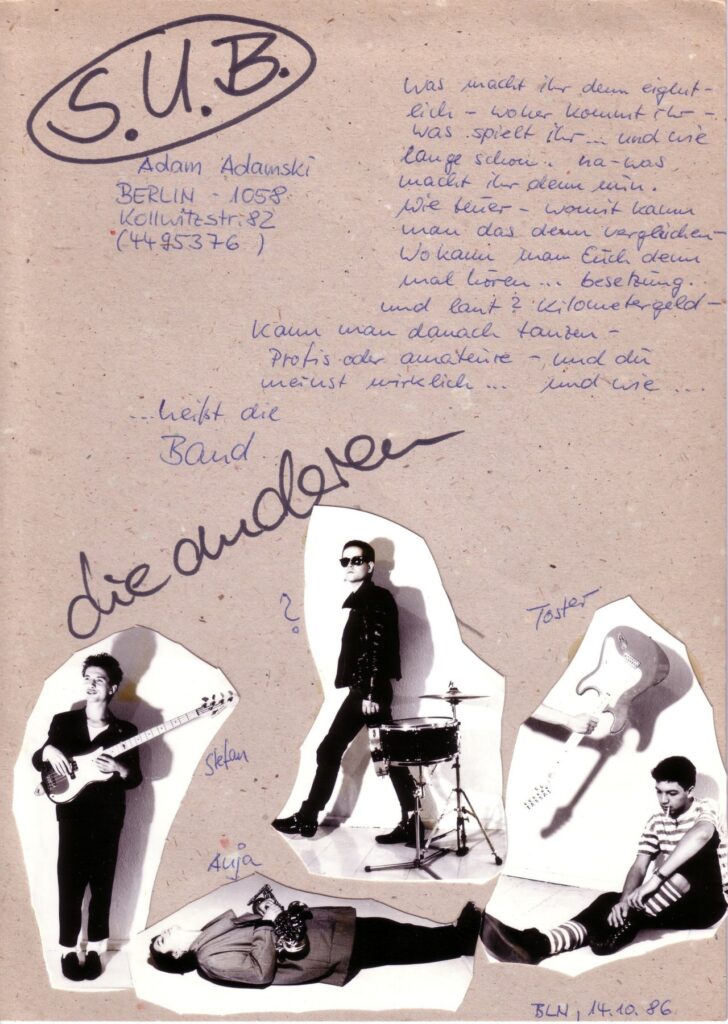 S.U.B.
Adam Adamski
BERLIN - 1058
Kollwitzstr. 82
(4495376)
Was macht ihr denn eigent-
lich - woher kommt ihr -
was spielt ihr... und wie
lange schon. na-was
macht ihr denn nun.
wie teuer - womit kann
man das denn vergleichen-
Wo kann man Euch denn
mal hören... besetzung.
und laut? Kilometergeld-
kann man danach tanzen -
Profis oder amateure - und du
meinst wirklich... und wie...
...heißt die
Band...
die anderen
?
Toster
Stefan
Anja
BLN, 14.10.86